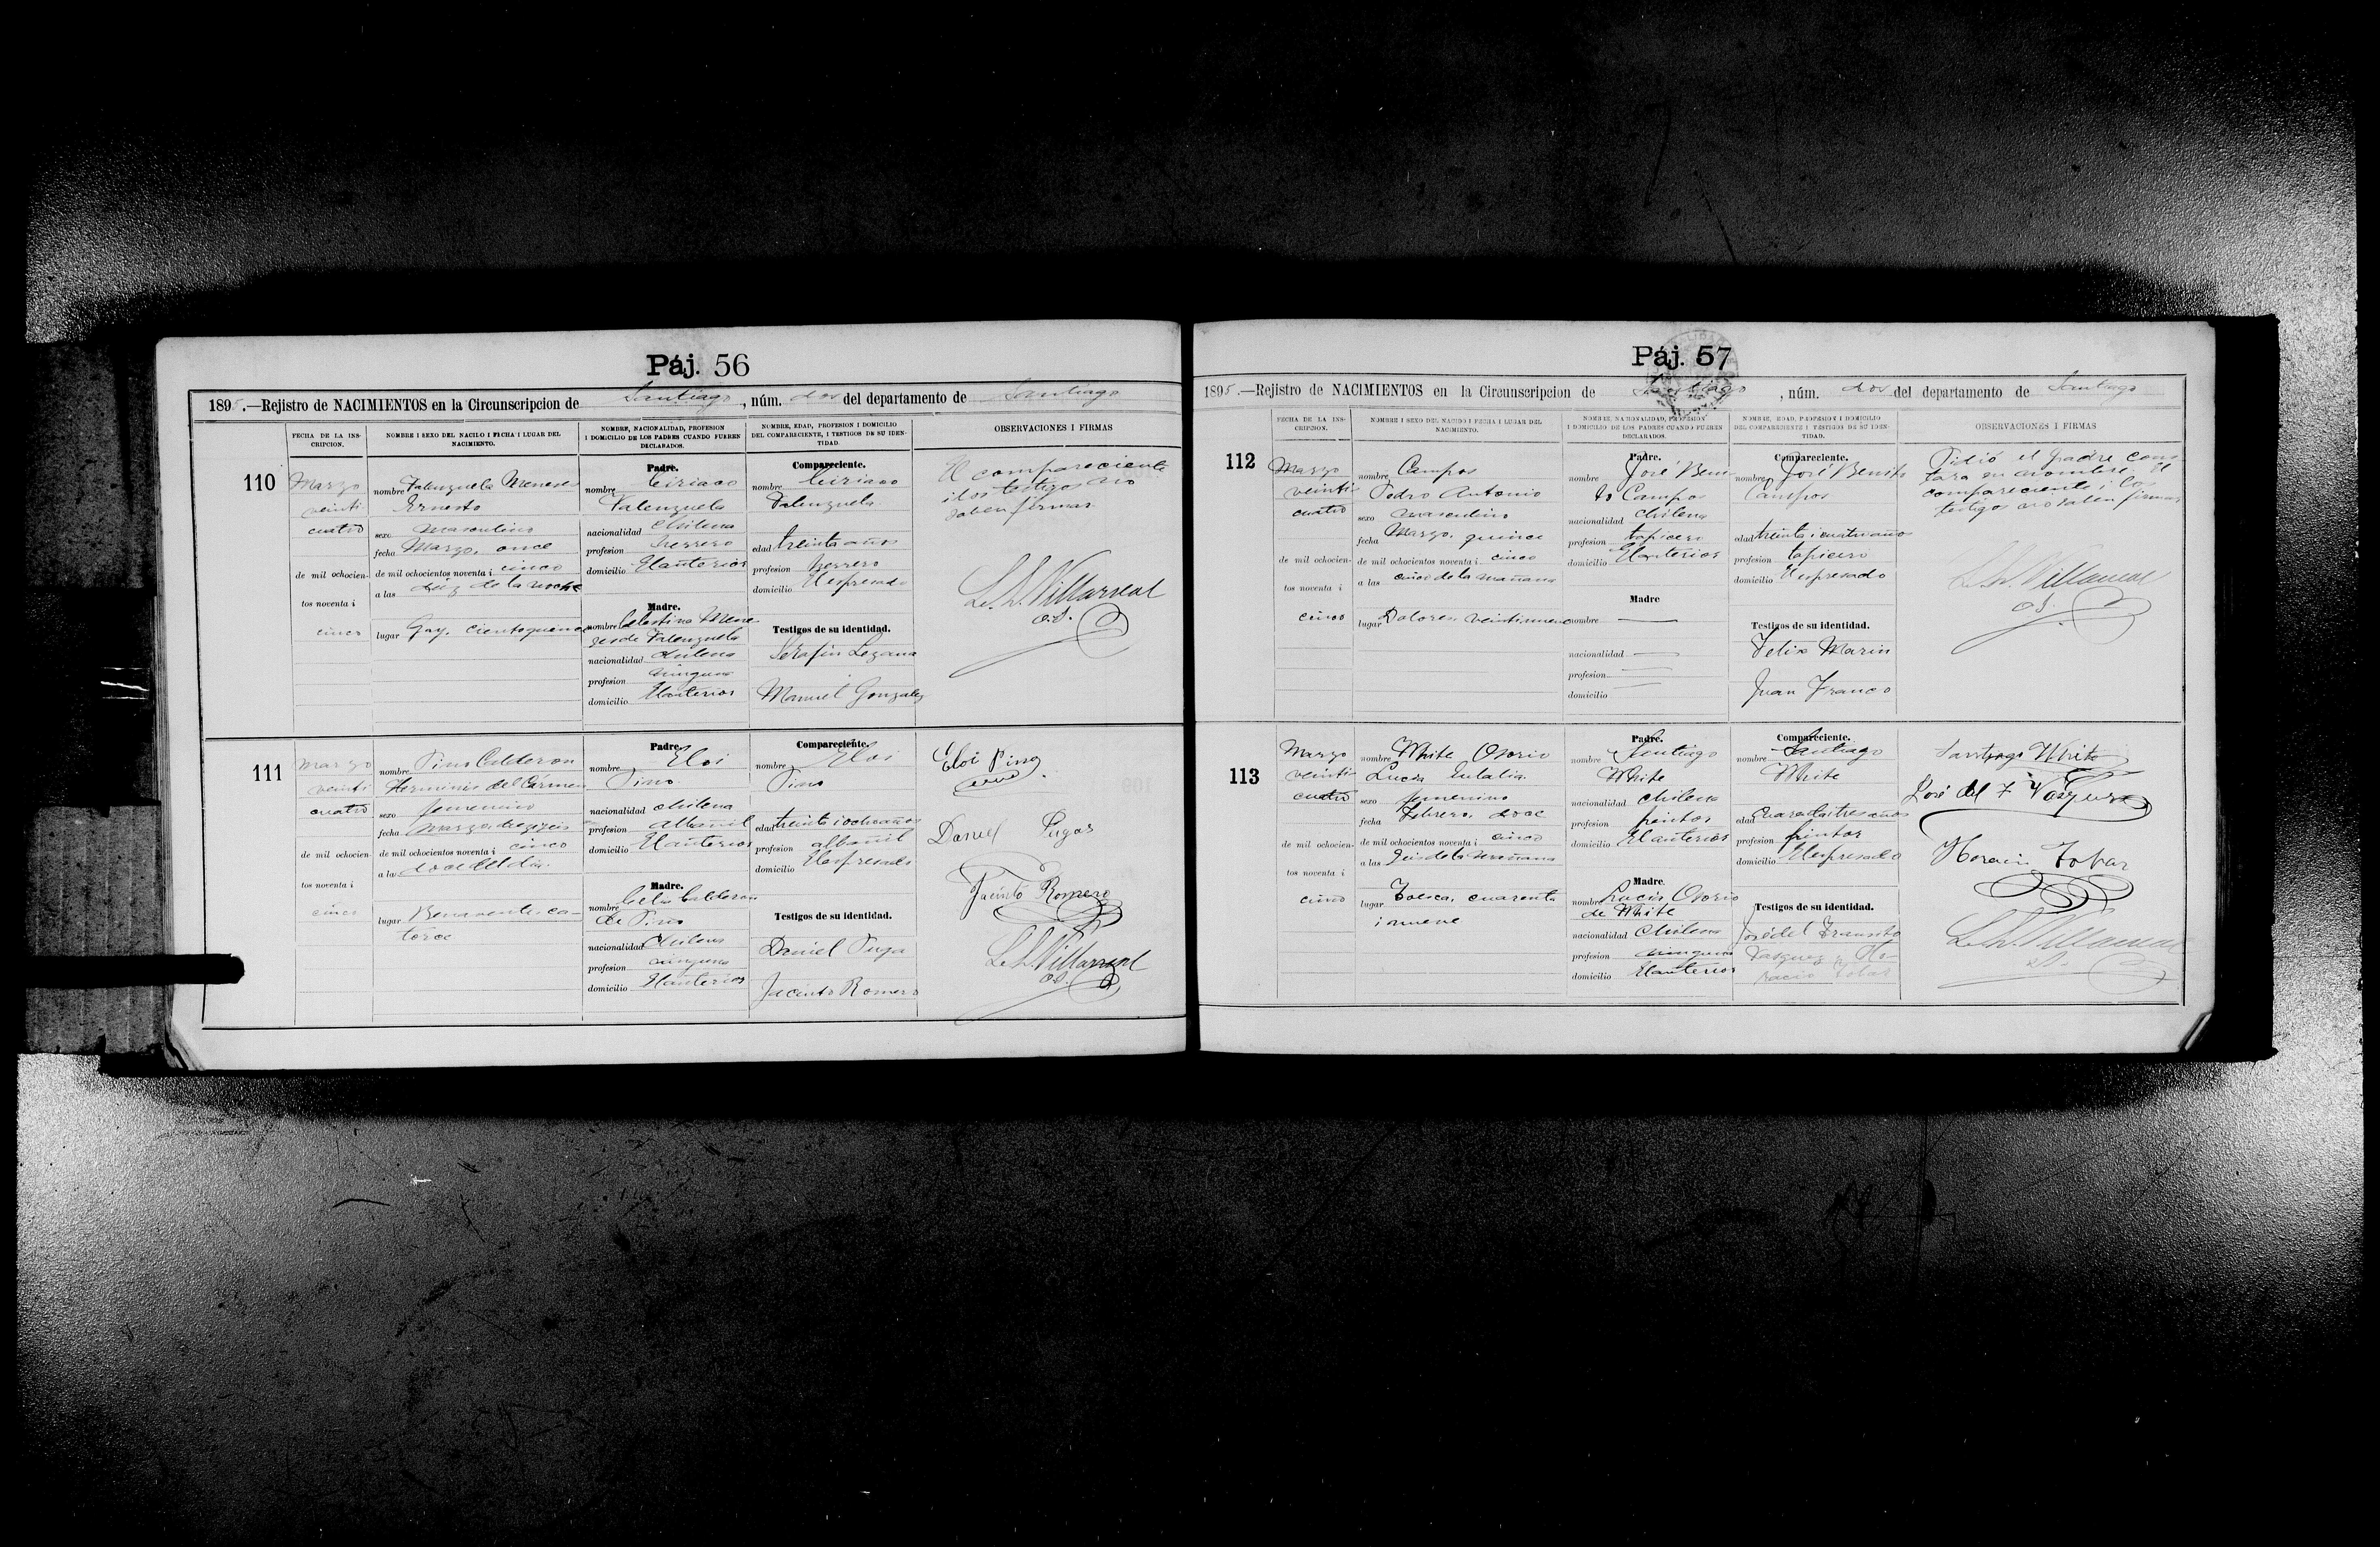 Páj. 56
1895.—Rejistro de NACIMIENTOS en la Circunscripcion de Santiago, núm. dos del departamento de Santiago
FECHA DE LA INSCRIPCION.
NOMBRE I SEXO DEL NACIDO I FECHA I LUGAR DEL NACIMIENTO.
NOMBRE, NACIONALIDAD, PROFESION I DOMICILIO DE LOS PADRES CUANDO FUEREN DECLARADOS.
NOMBRE, EDAD, PROFESION I DOMICILIO DEL COMPARECIENTE, I TESTIGOS DE SU IDENTIDAD.
OBSERVACIONES I FIRMAS
110
Marzo
veinti
cuatro
de mil ochocien-
tos noventa i
cinco
nombre Valenzuela Meneses
Ernesto
sexo masculino
fecha Marzo, once
de mil ochocientos noventa i cinco
a las diez de la noche
lugar Gay, ciento quince
Padre.
nombre Ciriaco
Valenzuela
nacionalidad chilena
profesion herrero
domicilio El anterior
Madre.
nombre Celestina Mene
ses de Valenzuela
nacionalidad chilena
profesion ninguna
domicilio El anterior
Compareciente.
nombre Ciriaco
Valenzuela
edad treinta años
profesion herrero
domicilio El espresado
Testigos de su identidad.
Serafin Lezana
Manuel Gonzalez
El compareciente
i los testigos no
saben firmar.
L. N. Villarreal
O.S.
111
Marzo
veinti
cuatro
de mil ochocien-
tos noventa i
cinco
nombre Pino Calderon
Herminia del Cármen
sexo femenino
fecha Marzo, diezyseis
de mil ochocientos noventa i cinco
a las doce del dia
lugar Benavente, ca-
torce
Padre.
nombre Eloi
Pino
nacionalidad chilena
profesion albañil
domicilio El anterior
Madre.
nombre Celia Calderon
de Pino
nacionalidad Chilena
profesion ninguna
domicilio El anterior
Compareciente.
nombre Eloi
Pino
edad treinta i ocho años
profesion albañil
domicilio El espresado
Testigos de su identidad.
Daniel Puga
Jacinto Romero
Eloi Pino
Daniel Pugas
Jacinto Romero
L. N. Villarreal
O.S.
Páj. 57
1895.—Rejistro de NACIMIENTOS en la Circunscripcion de Santiago, núm. dos del departamento de Santiago
FECHA DE LA INSCRIPCION.
NOMBRE I SEXO DEL NACIDO I FECHA I LUGAR DEL NACIMIENTO.
NOMBRE, NACIONALIDAD, PROFESION I DOMICILIO DE LOS PADRES CUANDO FUEREN DECLARADOS.
NOMBRE, EDAD, PROFESION I DOMICILIO DEL COMPARECIENTE I TESTIGOS DE SU IDENTIDAD.
OBSERVACIONES I FIRMAS
112
Marzo
veinti
cuatro
de mil ochocien-
tos noventa i
cinco
nombre Campos
Pedro Antonio
sexo masculino
fecha Marzo, quince
de mil ochocientos noventa i cinco
a las cinco de la mañana
lugar Dolores, veintinueve
Padre.
nombre José Beni
to Campos
nacionalidad chilena
profesion tapicero
domicilio El anterior
Madre
nombre
nacionalidad
profesion
domicilio
Compareciente.
nombre José Benito
Campos
edad treinta i cuatro años
profesion tapicero
domicilio El espresado
Testigos de su identidad.
Felix Marin
Juan Franco
Pidió el padre cons
tara su nombre. El
compareciente i los
testigos no saben firmar
L. N. Villarreal
O.S.
113
Marzo
veinti
cuatro
de mil ochocien-
tos noventa i
cinco
nombre White Osorio
Lucia Eulalia
sexo femenino
fecha Febrero, doce
de mil ochocientos noventa i cinco
a las seis de la mañana
lugar Toesca, cuarenta
i nueve
Padre.
nombre Santiago
White
nacionalidad chilena
profesion pintor
domicilio El anterior
Madre.
nombre Lucia Osorio
de White
nacionalidad Chilena
profesion ninguna
domicilio El anterior
Compareciente.
nombre Santiago
White
edad cuarentaitres años
profesion pintor
domicilio El espresado
Testigos de su identidad.
José del Transito
Vasquez, Ho-
racio Tobar
Santiago White
José del T Vasquez
Horacio Tobar
L. N. Villarreal